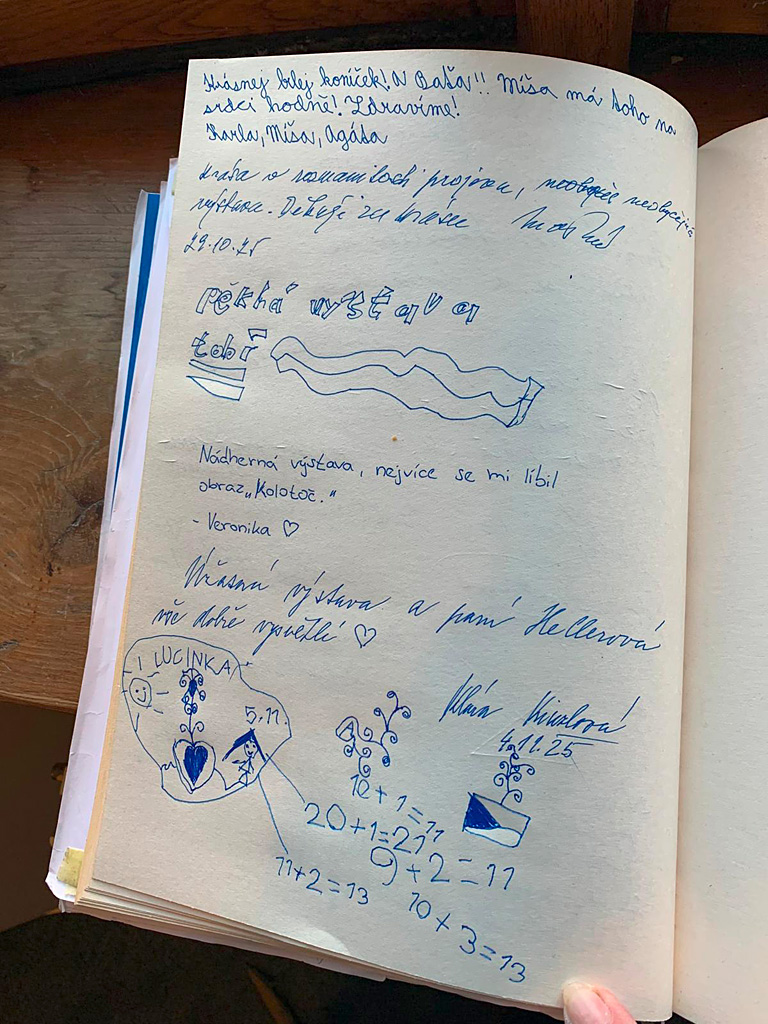 Krásnej bílej koníček! A Baťa!! Míša má toho na
srdci hodně! Zdravíme!
Karla, Míša, Agáta
Krása v rozmanitosti projevu, neobyčejná
výstava. Děkuji za krásu
29.10.25
pěkná výstava
Nádherná výstava, nejvíce se mi líbil
obraz „Kolotoč."
- Veronika ♡
Úžasná výstava a paní Hellerová
vše dobře vysvětlí ♡
Klára
4.11.25
I LUCINKA
5.11.
10+1=11
20+1=21
9+2=11
11+2=13
10+3=13